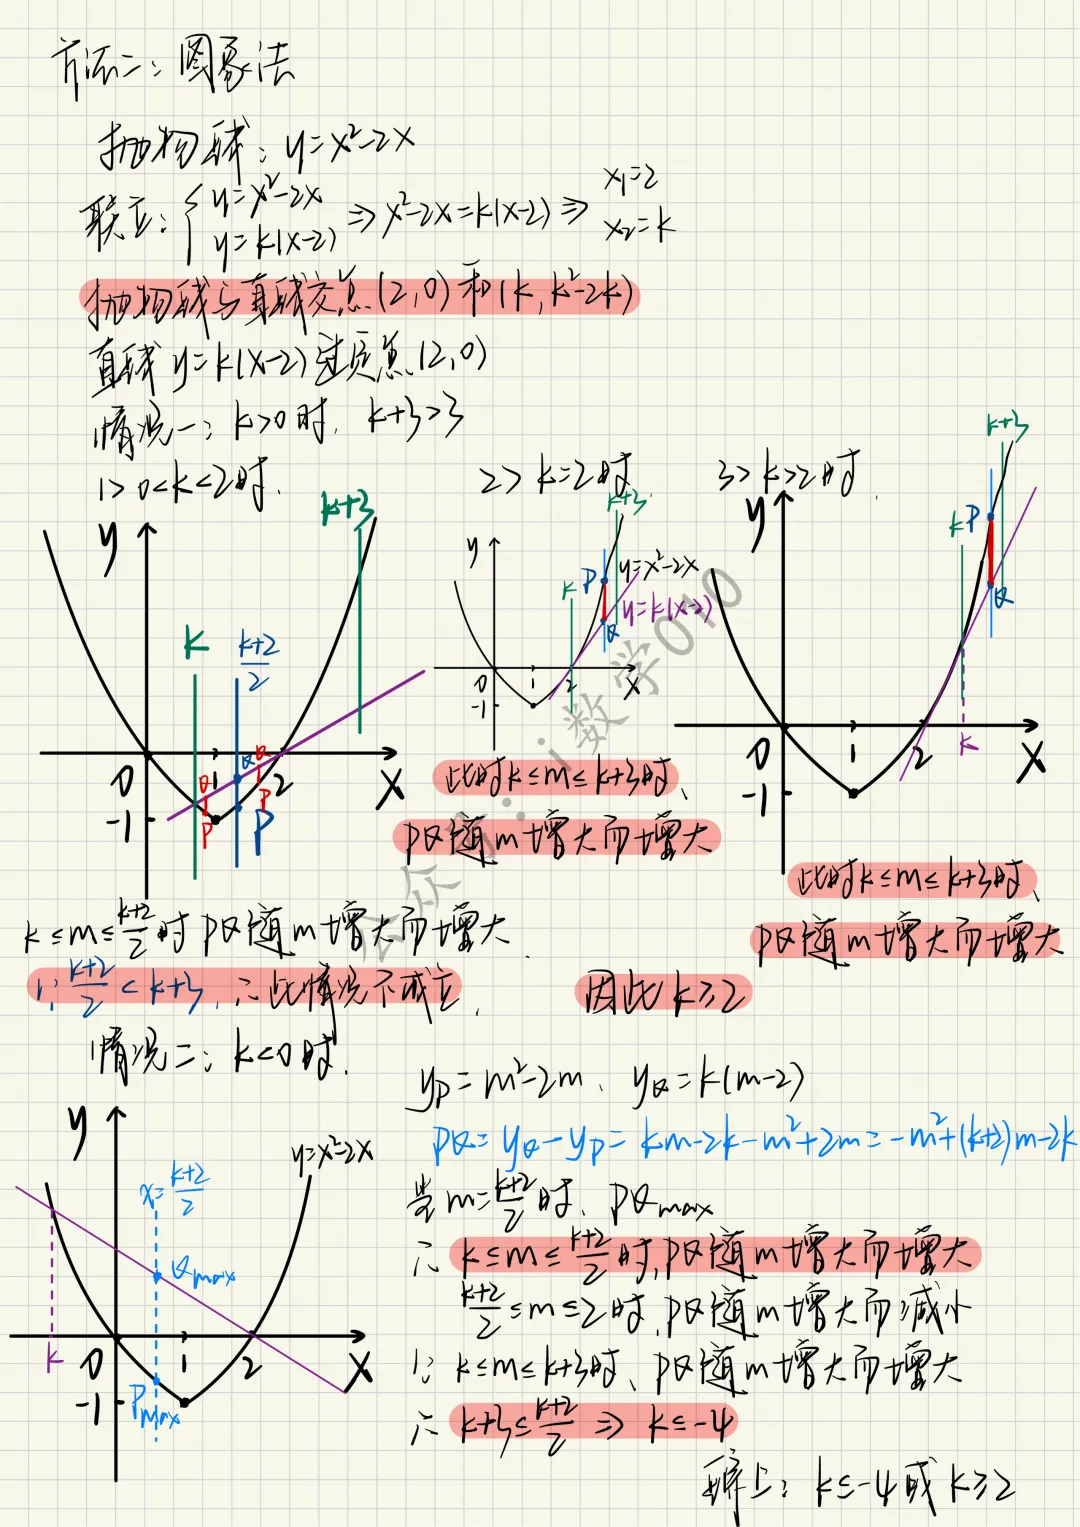 方法二：图象法
抛物线：y=x²-2x
联立：{y=x²-2x y=k(x-2) ⇒ x²-2x=k(x-2) ⇒ x₁=2 x₂=k
抛物线与直线交点(2,0)和(k,k²-2k)
直线y=k(x-2)过定点(2,0)
情况一：k>0时，k+3>3
1> 0<k<2时.
2> k=2时.
3> k>2时.
y k+3 k k+2/2 Q Q Q P P P 0 1 2 -1 x
y k k+3 P Q y=x²-2x y=k(x-2) 0 1 2 -1 x
y k k+3 P Q 0 1 2 k -1 x
此时k≤m≤k+3时、
PQ随m增大而增大
此时k≤m≤k+3时、
PQ随m增大而增大
k≤m≤k+2/2时PQ随m增大而增大
∵k+2/2<k+3，∴此情况不成立.
因此k≥2
情况二：k<0时.
y y=x²-2x x=k+2/2 Qmax k 0 1 2 x -1 Pmax
yP=m²-2m、yQ=k(m-2)
PQ=yQ-yP=km-2k-m²+2m=-m²+(k+2)m-2k
当m=k+2/2时、PQmax
∴k≤m≤k+2/2时,PQ随m增大而增大
k+2/2≤m≤2时,PQ随m增大而减小
∵k≤m≤k+3时、PQ随m增大而增大
∴k+3≤k+2/2 ⇒ k≤-4
综上：k≤-4或k≥2
公众号：i数学010